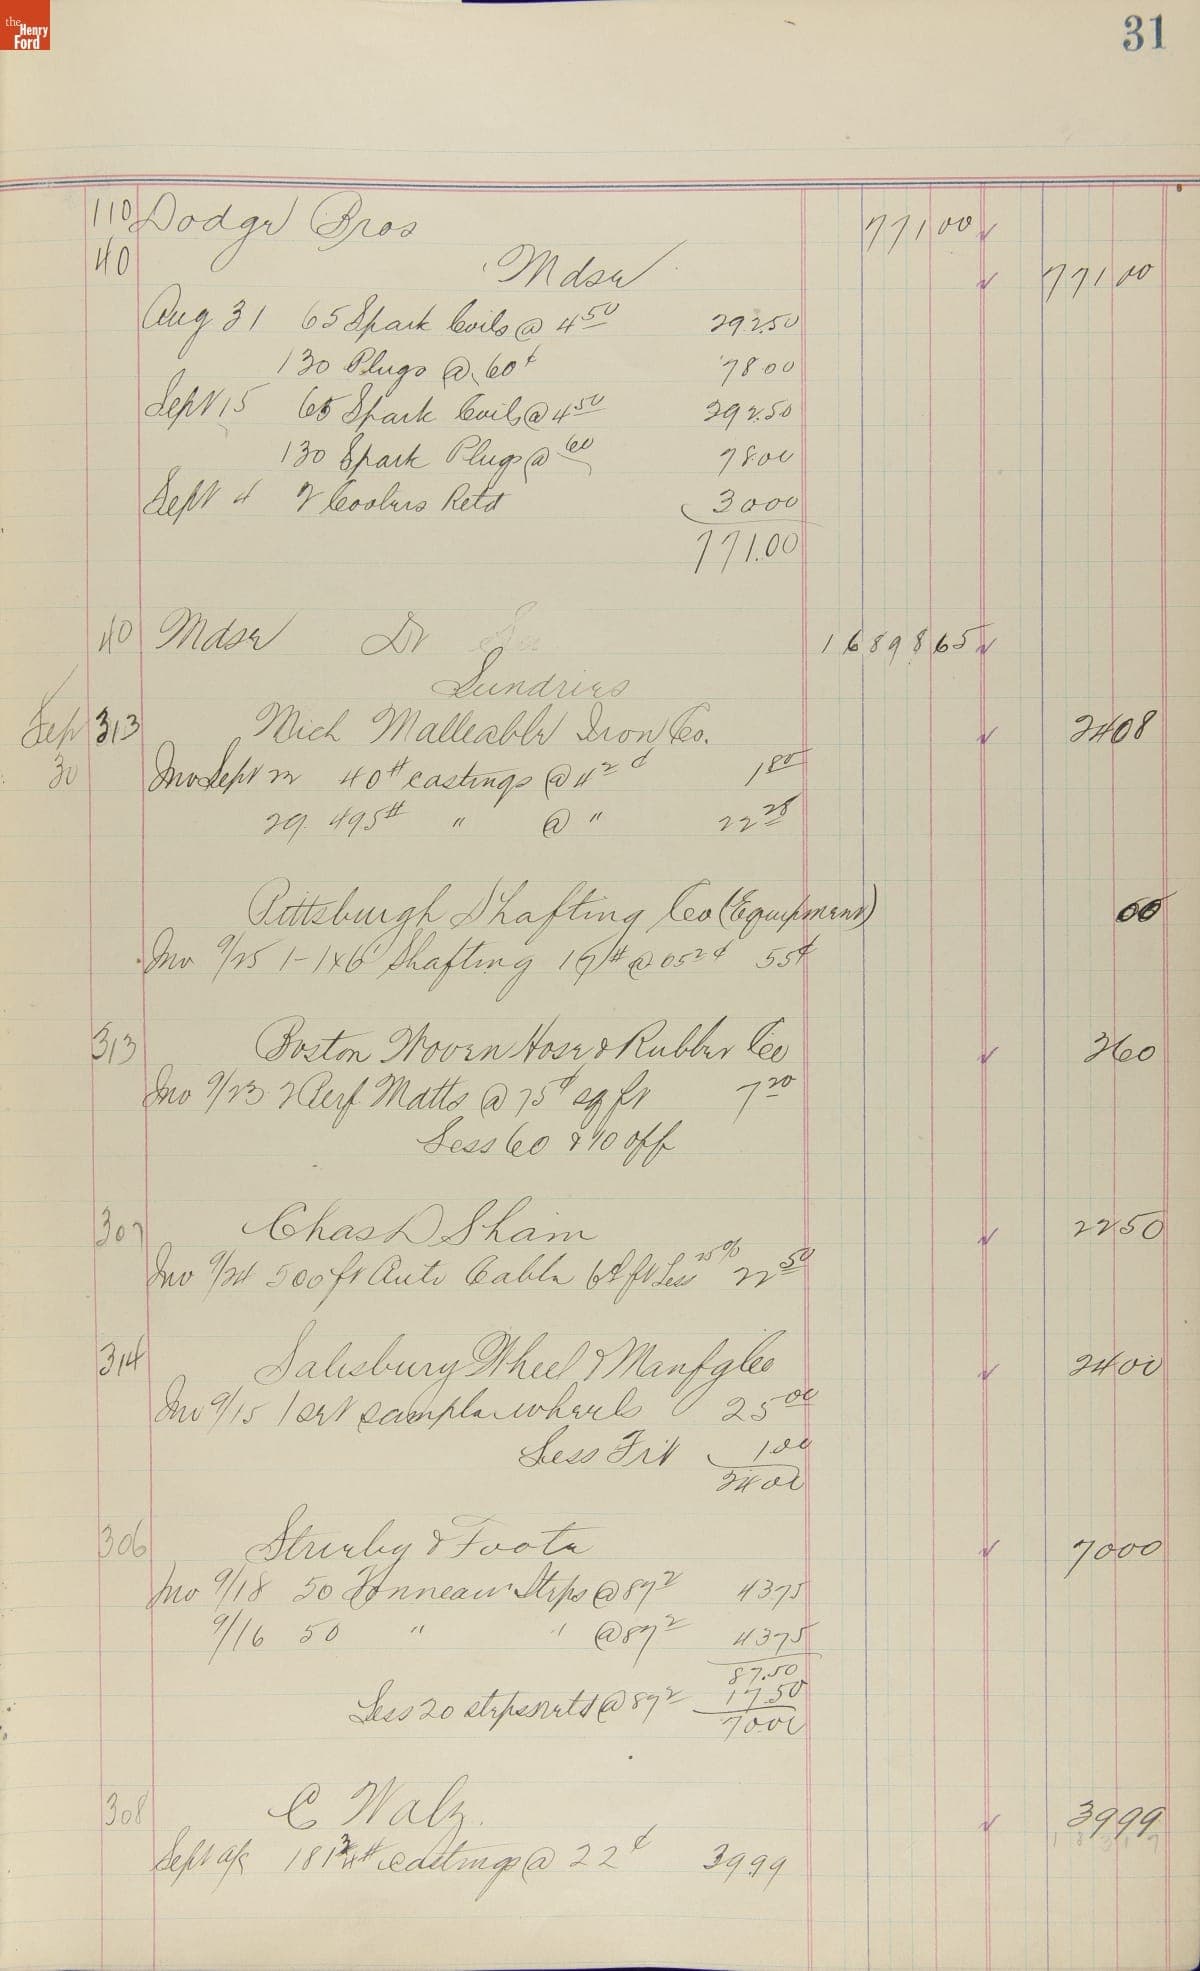 the Henry Ford
31
110 Dodge Bros 771 00
40 Mdse 771 00
Aug 31 65 Spark Coils @ 4 50 292.50
130 Plugs @ 60¢ 78 00
Sept 15 65 Spark Coils @ 4 50 292.50
130 Spark Plugs @ 60 78.00
Sept 4 2 Coolers Retd 30 00
771.00
40 Mdse Dr 16898 65
Sundries
Sep 313 Mich Malleable Iron Co. 24 08
30 Inv Sept 22 40# castings @ 4 2 ¢ 1 80
29 495# " @ " 22 28
Pittsburgh Shafting Co (Equipment) 00
Inv 9/25 1-1x6' Shafting 17# @ 05 2 ¢ 55¢
313 Boston Woven Hose & Rubber Co 2 60
Inv 9/23 2 Perf Matts @ 75¢ sq ft 7 20
Less 60 & 10 off
307 Chas D Sham 22 50
Inv 9/24 500 ft Auto Cable 6¢ ft Less 25% 22 50
314 Salisbury Wheel & Manfg Co 24 00
Inv 9/15 1 set sample wheels 25 00
Less Frt 1.00
24 00
306 Strelby & Foote 70 00
Inv 9/18 50 Tonneau Steps @ 87 2 43 75
9/16 50 " " @ 87 2 43 75
87.50
Less 20 steps retd @ 87 2 17 50
70.00
308 C Walz. 39 99
Sept a/c 181 3/4# castings @ 22¢ 39 99